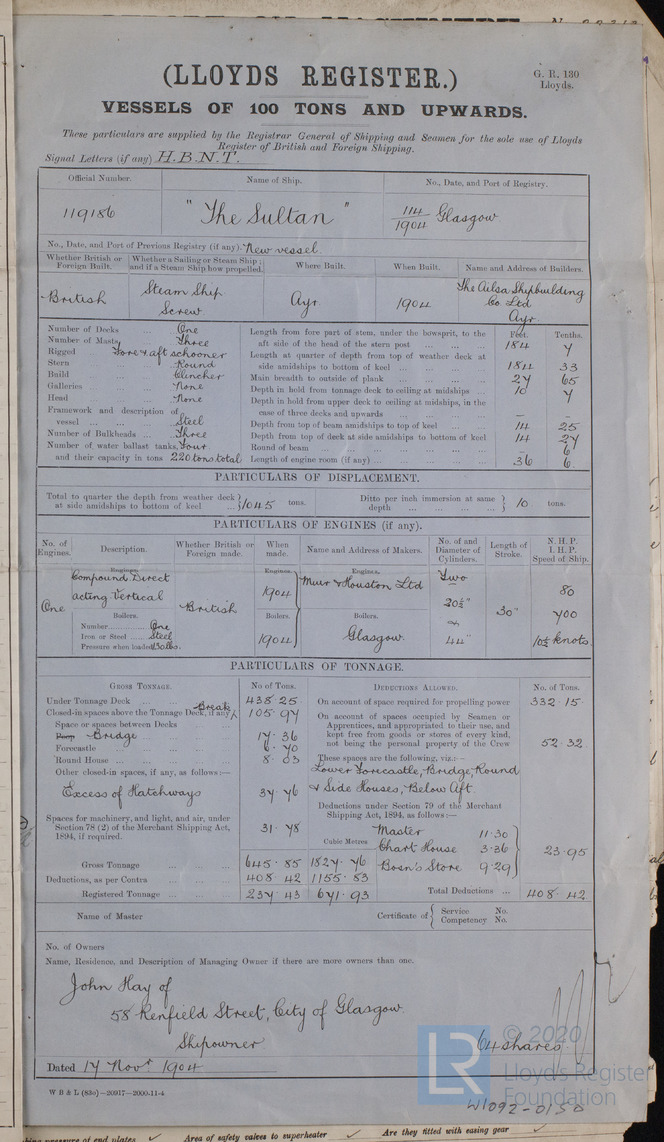 (LLOYDS REGISTER.)
G. R. 130
Lloyds.
VESSELS OF 100 TONS AND UPWARDS.
These particulars are supplied by the Registrar General of Shipping and Seamen for the sole use of Lloyds
Register of British and Foreign Shipping.
Signal Letters (if any) H.B.N.T.
Official Number. Name of Ship. No., Date, and Port of Registry.
119186 "The Sultan" 114/1904 Glasgow
No., Date, and Port of Previous Registry (if any). New vessel.
Whether British or Foreign Built. Whether a Sailing or Steam Ship; and if a Steam Ship how propelled. Where Built. When Built. Name and Address of Builders.
British Steam Ship Screw Ayr 1904 The Ailsa Shipbuilding Co Ltd Ayr.
Number of Decks ... One
Number of Masts Three
Rigged Fore & aft schooner
Stern ... Round
Build ... Clincher
Galleries ... None
Head ... None
Framework and description of
vessel ... Steel
Number of Bulkheads ... Three
Number of water ballast tanks, Four
and their capacity in tons 220 tons total
Feet. Tenths.
Length from fore part of stem, under the bowsprit, to the
aft side of the head of the stern post ... 184 7
Length at quarter of depth from top of weather deck at
side amidships to bottom of keel ... 184 33
Main breadth to outside of plank ... 27 65
Depth in hold from tonnage deck to ceiling at midships ... 10 7
Depth in hold from upper deck to ceiling at midships, in the
case of three decks and upwards - -
Depth from top of beam amidships to top of keel ... 14 25
Depth from top of deck at side amidships to bottom of keel 14 27
Round of beam ... - 6
Length of engine room (if any) ... 36 6
PARTICULARS OF DISPLACEMENT.
Total to quarter the depth from weather deck
at side amidships to bottom of keel ... 1045 tons.
Ditto per inch immersion at same
depth ... 10 tons.
PARTICULARS OF ENGINES (if any).
No. of Engines. Description. Whether British or Foreign made. When made. Name and Address of Makers. No. of and Diameter of Cylinders. Length of Stroke. N. H. P. I. H. P. Speed of Ship.
Engines. Engines. Engines.
One Compound Direct acting Vertical British 1904 Muir & Houston Ltd Two 30" 80
700
Boilers. Boilers. Boilers.
Number One
Iron or Steel Steel 1904 Glasgow. 44" 10½ knots
Pressure when loaded 130 lbs.
PARTICULARS OF TONNAGE.
GROSS TONNAGE. No of Tons.
Under Tonnage Deck ... 438.25
Closed-in spaces above the Tonnage Deck, if any Break 105.97
Space or spaces between Decks
Poop Bridge 17.36
Forecastle ... 6.70
Round House ... 8.03
Other closed-in spaces, if any, as follows:—
Excess of Hatchways 37.76
Spaces for machinery, and light, and air, under
Section 78 (2) of the Merchant Shipping Act,
1894, if required. 31.78
Cubic Metres
Gross Tonnage ... 645.85 1827.76
Deductions, as per Contra ... 408.42 1155.83
Registered Tonnage ... 237.43 671.93
DEDUCTIONS ALLOWED. No. of Tons.
On account of space required for propelling power 332.15
On account of spaces occupied by Seamen or
Apprentices, and appropriated to their use, and
kept free from goods or stores of every kind,
not being the personal property of the Crew 52.32
These spaces are the following, viz.:—
Lower Forecastle, Bridge, Round
& Side Houses, Below Aft.
Deductions under Section 79 of the Merchant
Shipping Act, 1894, as follows:—
Master 11.30
Chart House 3.36 23.95
Bosn's Store 9.29
Total Deductions ... 408.42
Name of Master
Certificate of Service No.
Competency No.
No. of Owners
Name, Residence, and Description of Managing Owner if there are more owners than one.
John Hay of
58 Renfield Street, City of Glasgow.
Shipowner 64 shares.
Dated 17 Novr 1904
W B & L (83o)—20917—2000-11-4
© 2020
LR Lloyd's Register
Foundation
W1092-0150
Area of safety valves to superheater
Are they fitted with easing gear